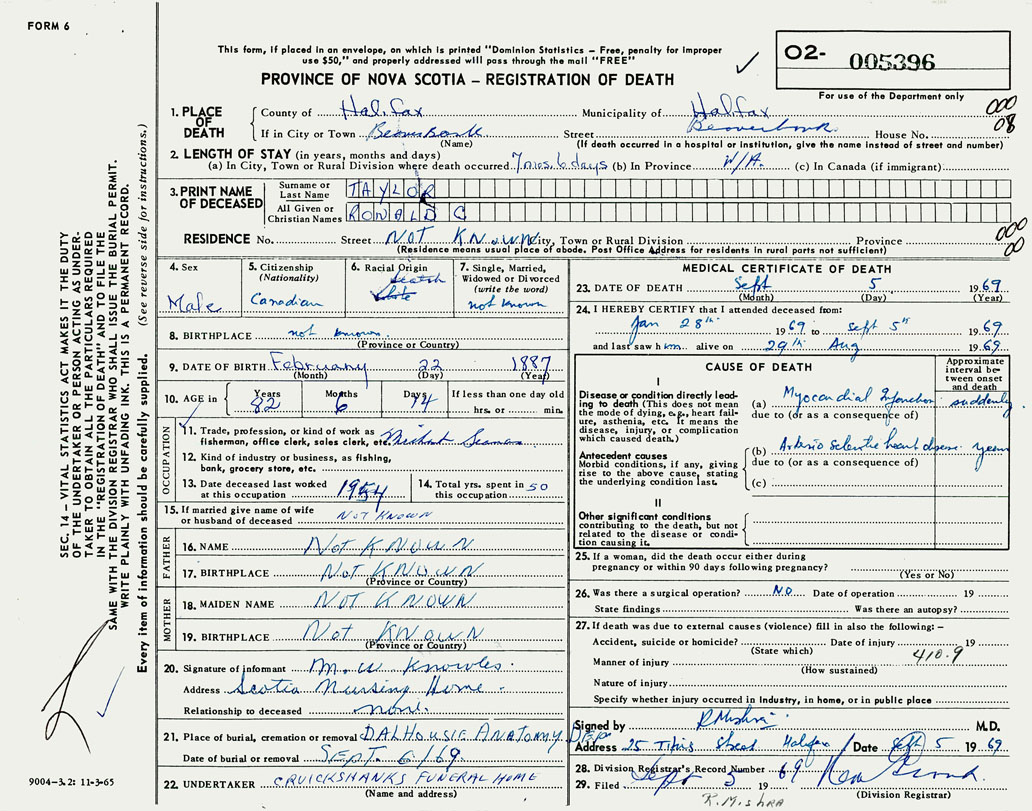 FORM 6
This form, if placed in an envelope, on which is printed "Dominion Statistics – Free, penalty for improper
use $50," and properly addressed will pass through the mail "FREE"
PROVINCE OF NOVA SCOTIA – REGISTRATION OF DEATH
O2- 005396
For use of the Department only
000
08
1. PLACE OF DEATH
County of Halifax Municipality of Halifax
If in City or Town Beaverbank Street Beaverbank House No.
(Name) (If death occurred in a hospital or institution, give the name instead of street and number)
2. LENGTH OF STAY (in years, months and days)
(a) In City, Town or Rural Division where death occurred 7 mos. 6 days (b) In Province N/A. (c) In Canada (if immigrant)
3. PRINT NAME OF DECEASED
Surname or Last Name TAYLOR
All Given or Christian Names RONALD C
RESIDENCE No. Street NOT KNOWN City, Town or Rural Division Province
(Residence means usual place of abode. Post Office Address for residents in rural parts not sufficient)
000
00
4. Sex Male
5. Citizenship (Nationality) Canadian
6. Racial Origin
7. Single, Married, Widowed or Divorced (write the word) not known
8. BIRTHPLACE not known
(Province or Country)
9. DATE OF BIRTH February 22 1887
(Month) (Day) (Year)
10. AGE in Years 82 Months 6 Days 14 If less than one day old hrs. or min.
OCCUPATION
11. Trade, profession, or kind of work as
fisherman, office clerk, sales clerk, etc. Merchant Seaman
12. Kind of industry or business, as fishing,
bank, grocery store, etc.
13. Date deceased last worked
at this occupation 1954
14. Total yrs. spent in
this occupation 50
15. If married give name of wife
or husband of deceased NOT KNOWN
FATHER
16. NAME NOT KNOWN
17. BIRTHPLACE NOT KNOWN
(Province or Country)
MOTHER
18. MAIDEN NAME NOT KNOWN
19. BIRTHPLACE NOT KNOWN
(Province or Country)
20. Signature of informant M. W Knowles
Address Scotia Nursing Home
Relationship to deceased none.
21. Place of burial, cremation or removal DALHOUSIE ANATOMY DEP
Date of burial or removal SEPT. 6/69.
22. UNDERTAKER CRUICKSHANKS FUNERAL HOME
(Name and address)
MEDICAL CERTIFICATE OF DEATH
23. DATE OF DEATH Sept 5 1969
(Month) (Day) (Year)
24. I HEREBY CERTIFY that I attended deceased from:
Jan 28th 1969 to Sept 5th 1969
and last saw him alive on 29th Aug 1969
CAUSE OF DEATH
Approximate interval between onset and death
I
Disease or condition directly leading to death (This does not mean the mode of dying, e.g., heart failure, asthenia, etc. It means the disease, injury, or complication which caused death.)
(a) Myocardial Infarction suddenly
due to (or as a consequence of)
Antecedent causes
Morbid conditions, if any, giving rise to the above cause, stating the underlying condition last.
(b) Arterio Sclerotic heart disease years
due to (or as a consequence of)
(c)
II
Other significant conditions
contributing to the death, but not related to the disease or condition causing it.
25. If a woman, did the death occur either during
pregnancy or within 90 days following pregnancy?
(Yes or No)
26. Was there a surgical operation? NO Date of operation 19
State findings Was there an autopsy?
27. If death was due to external causes (violence) fill in also the following: –
Accident, suicide or homicide? Date of injury 19
(State which) 410.9
Manner of injury
(How sustained)
Nature of injury
Specify whether injury occurred in industry, in home, or in public place
Signed by R Mishra M.D.
Address 25 Street Halifax Date Sept 5 1969
28. Division Registrar's Record Number 69
29. Filed Sept 5 19
(Division Registrar)
R. MISHRA
SEC. 14 – VITAL STATISTICS ACT MAKES IT THE DUTY
OF THE UNDERTAKER OR PERSON ACTING AS UNDERTAKER TO OBTAIN ALL THE PARTICULARS REQUIRED
IN THE "REGISTRATION OF DEATH" AND TO FILE THE
SAME WITH THE DIVISION REGISTRAR WHO SHALL ISSUE THE BURIAL PERMIT.
WRITE PLAINLY WITH UNFADING INK. THIS IS A PERMANENT RECORD.
Every item of information should be carefully supplied. (See reverse side for instructions.)
9004-3.2: 11-3-65